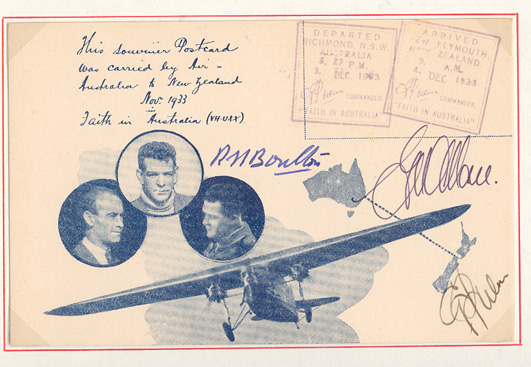 This souvenir Postcard
was carried by Air -
Australia to New Zealand
Nov. 1933
Faith in Australia (VH-UXX)
DEPARTED
RICHMOND, N.S.W.
AUSTRALIA
DEC 1933
COMMANDER
"FAITH IN AUSTRALIA"
ARRIVED
NEW PLYMOUTH,
NEW ZEALAND.
A.M.
DEC 1933
COMMANDER.
"FAITH IN AUSTRALIA"
R N Boulton